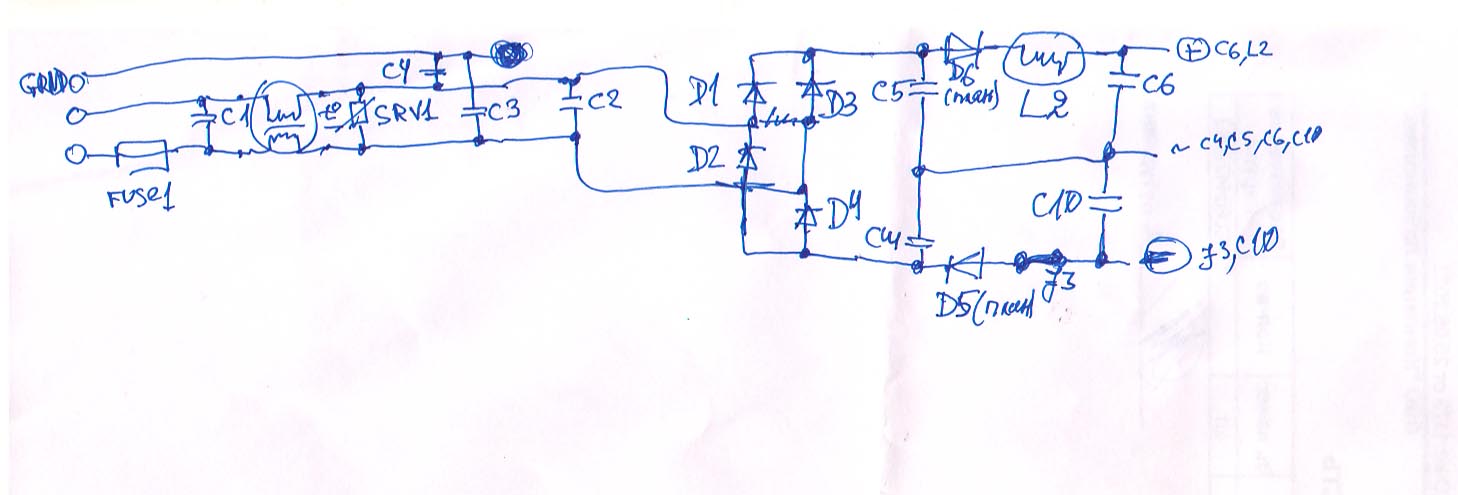 GRND
FUSE1
C1
SRV1
C4
C3
C2
D1
D3
D2
D4
C5
D6
(плав)
L2
C6
+ C6, L2
~ C4, C5, C6, C10
C10
C4
D5 (плав)
J3
- J3, C10